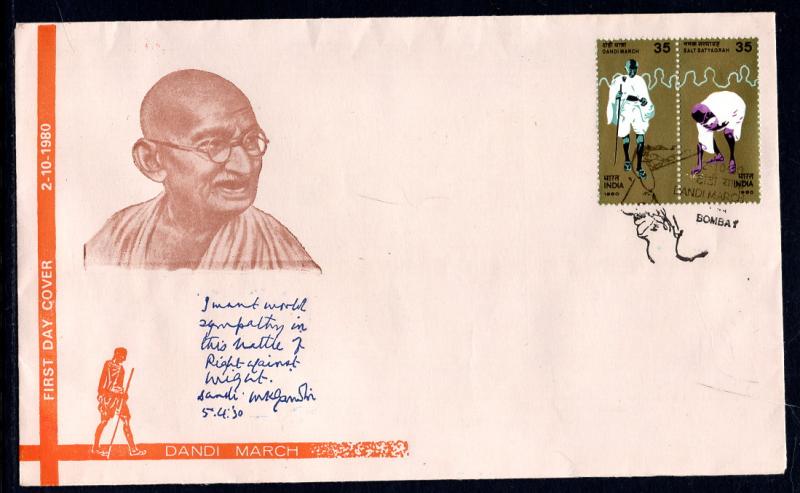 FIRST DAY COVER 2-10-1980
I want world
sympathy in
this battle of
Right against
might.
Dandi MKGandhi
5.4.'30
DANDI MARCH
दांडी यात्रा 35
DANDI MARCH
भारत
INDIA
1980
नमक सत्याग्रह 35
SALT SATYAGRAH
भारत
INDIA
1980
DANDI MARCH
BOMBAY